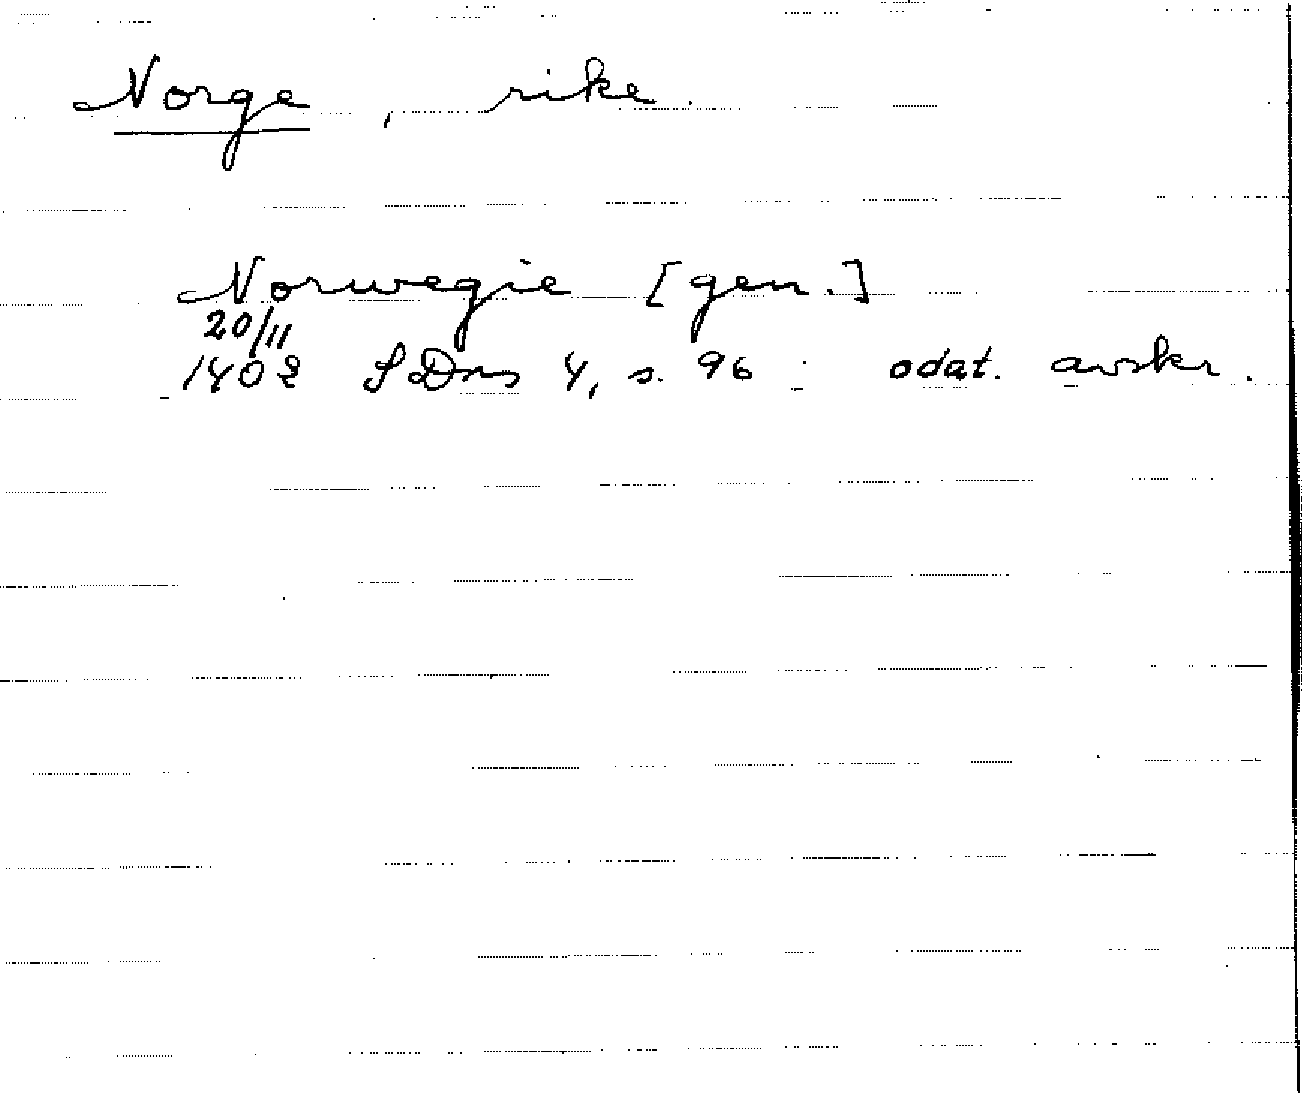 Norge, rike.
Norwegie [gen.]
20/11
1402 SDns 4, s. 96 odat. avskr.